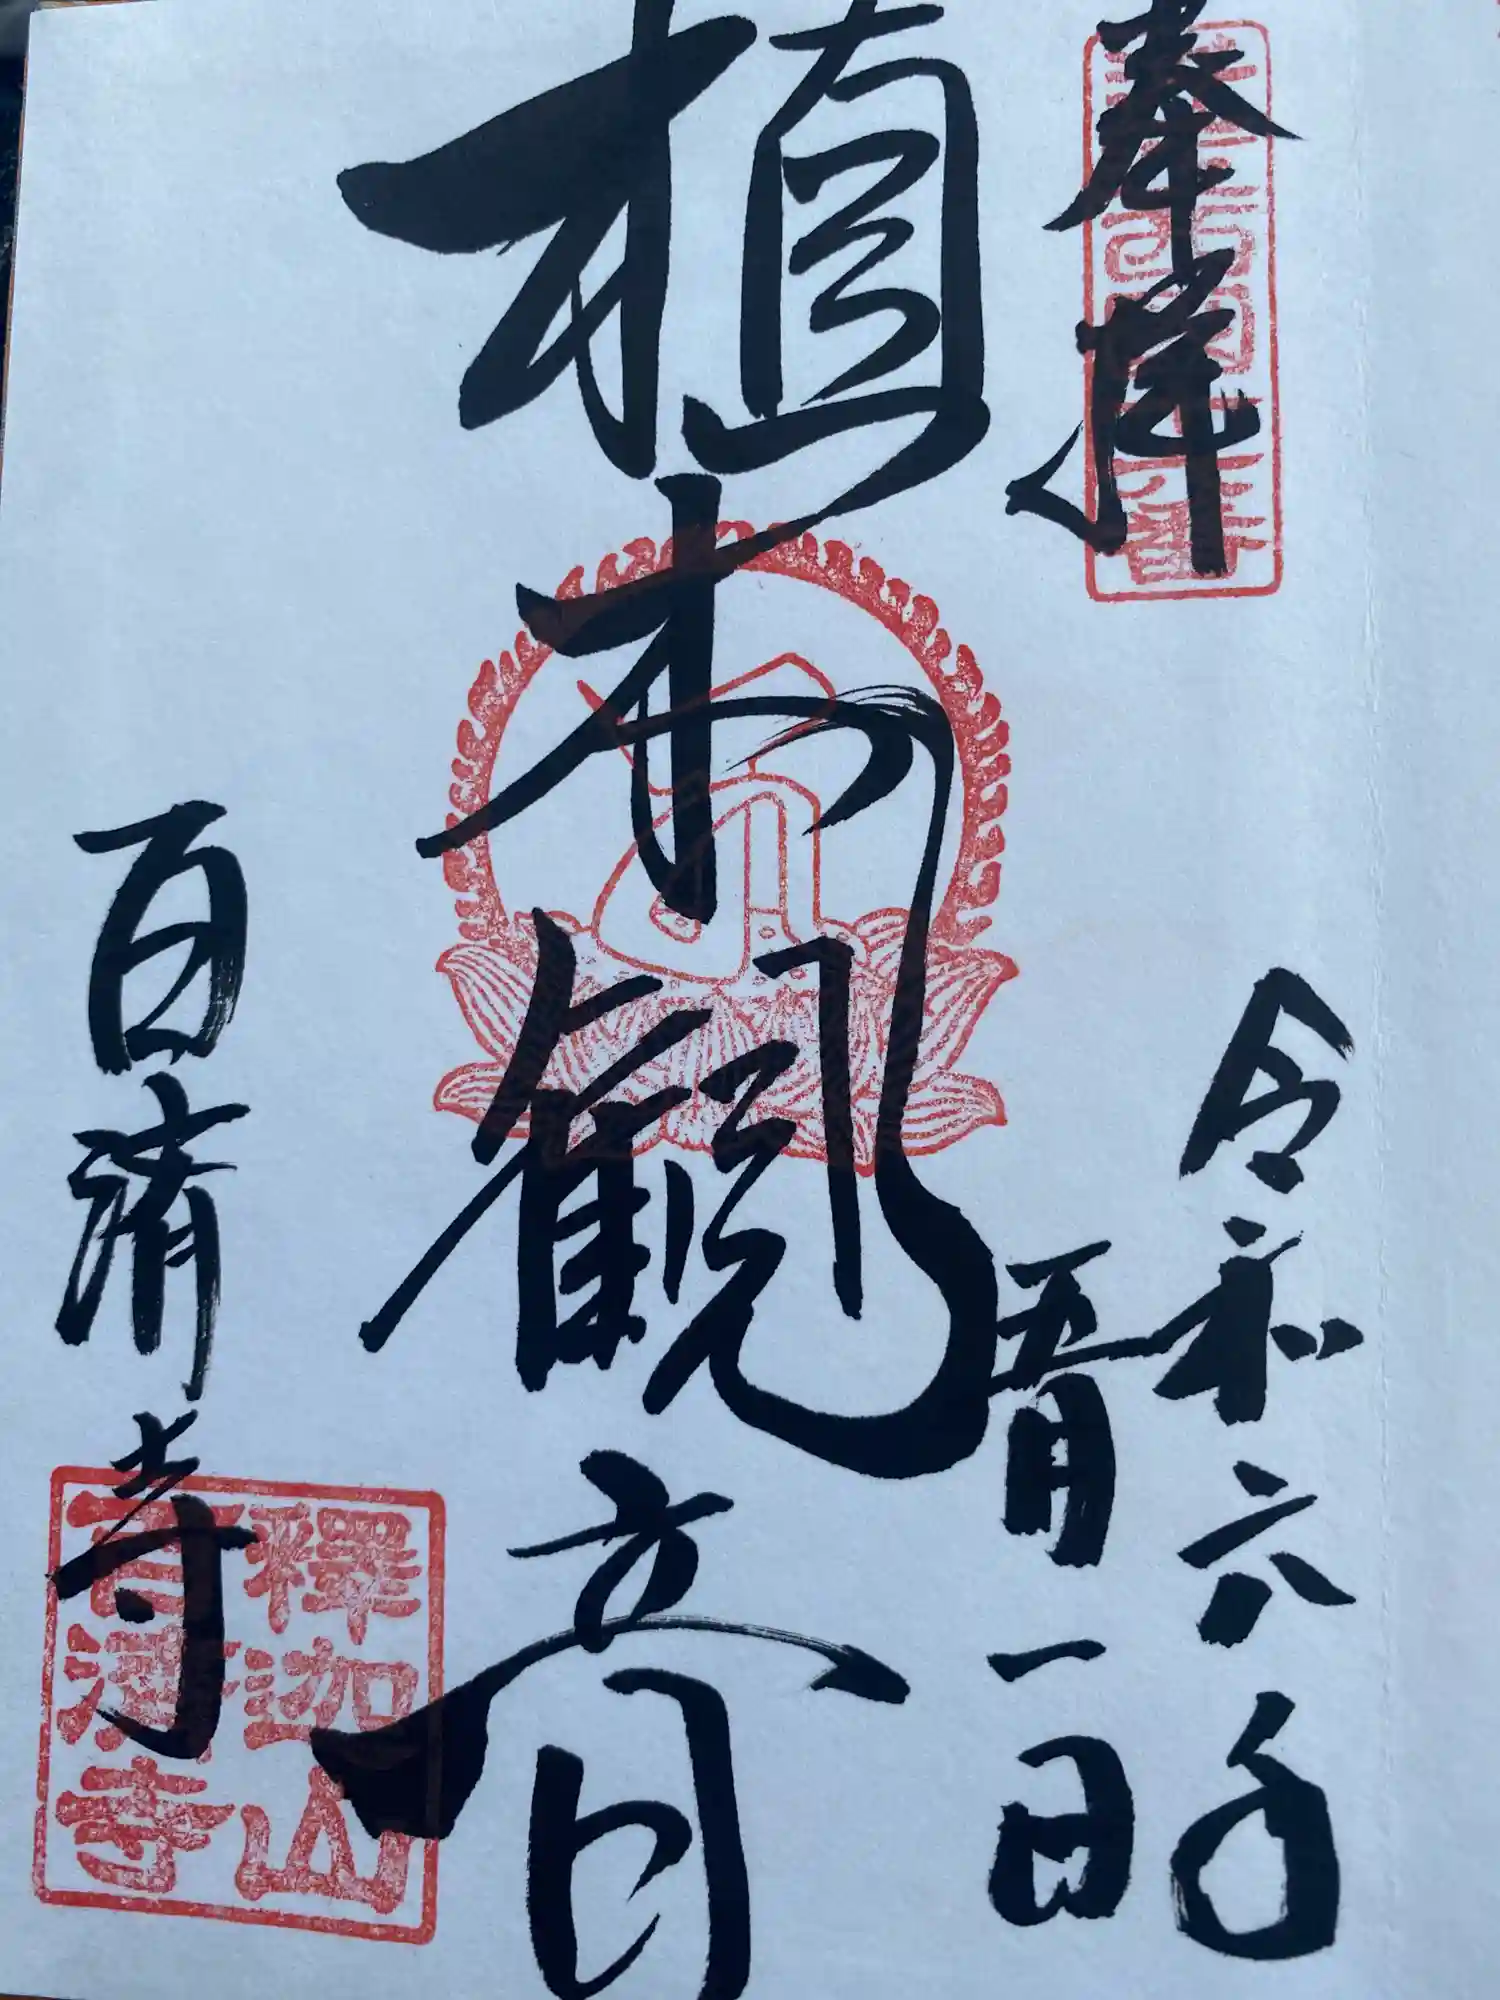 奉拝
令和六年
五月一日
植木観音
百済寺
釋迦山
百濟寺